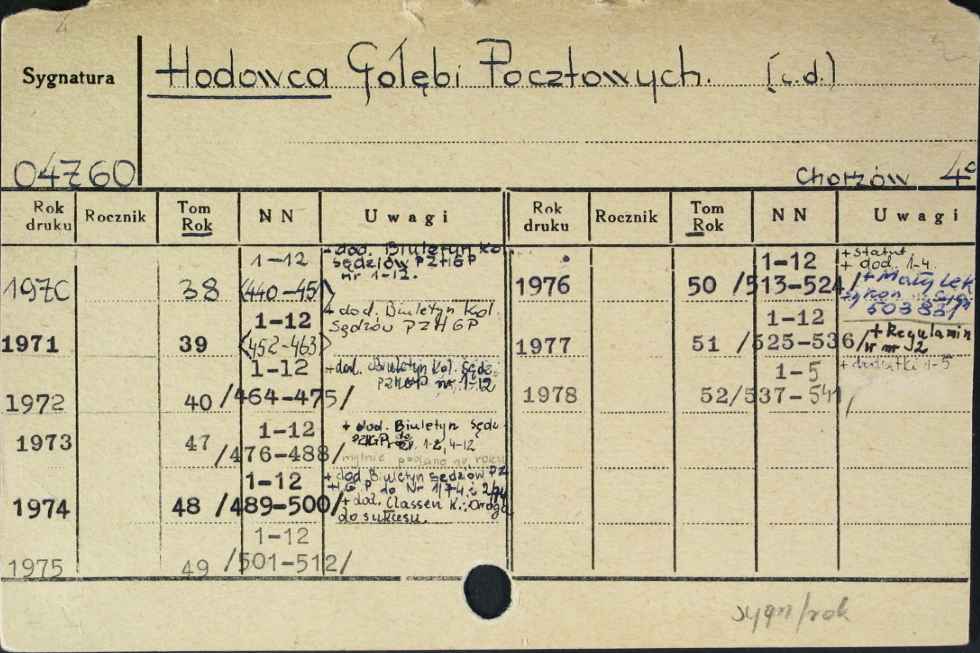 Sygnatura
Hodowca Gołębi Pocztowych. (c.d.)
04760
Chorzów 4°
Rok druku Rocznik Tom Rok NN Uwagi
1970 38 1-12
+ dod. Biuletyn Kol sędziów PZHGP
nr 1-12.
1971 39 1-12 (452-463)
+ dod. Biuletyn Kol.
Sędziów PZHGP
1972 40 1-12 /464-475/
+ dod. Biuletyn Kol. Sędz.
PZHGP nr. 1-12
1973 47 1-12 /476-488/
+ dod. Biuletyn Sędz.
PZHGP nr. 1-2, 4-12
mylnie podano nr. roku
1974 48 1-12 /489-500/
+ dod Biuletyn Sędziów PZ
HGP do Nr 1/74 i 2/74
+ dod. Classen K.: Droga
do sukcesu.
1975 49 1-12 /501-512/
Rok druku Rocznik Tom Rok NN Uwagi
1976 50 1-12 /513-524/
+ statut
+ dod. 1-4.
+ Mały Lek
sykon sygn
50383/
1977 51 1-12 /525-536/
+ Regulamin
nr 12
1978 52 1-5 /537-541/
+ dodatki 1-5
sygn/rok